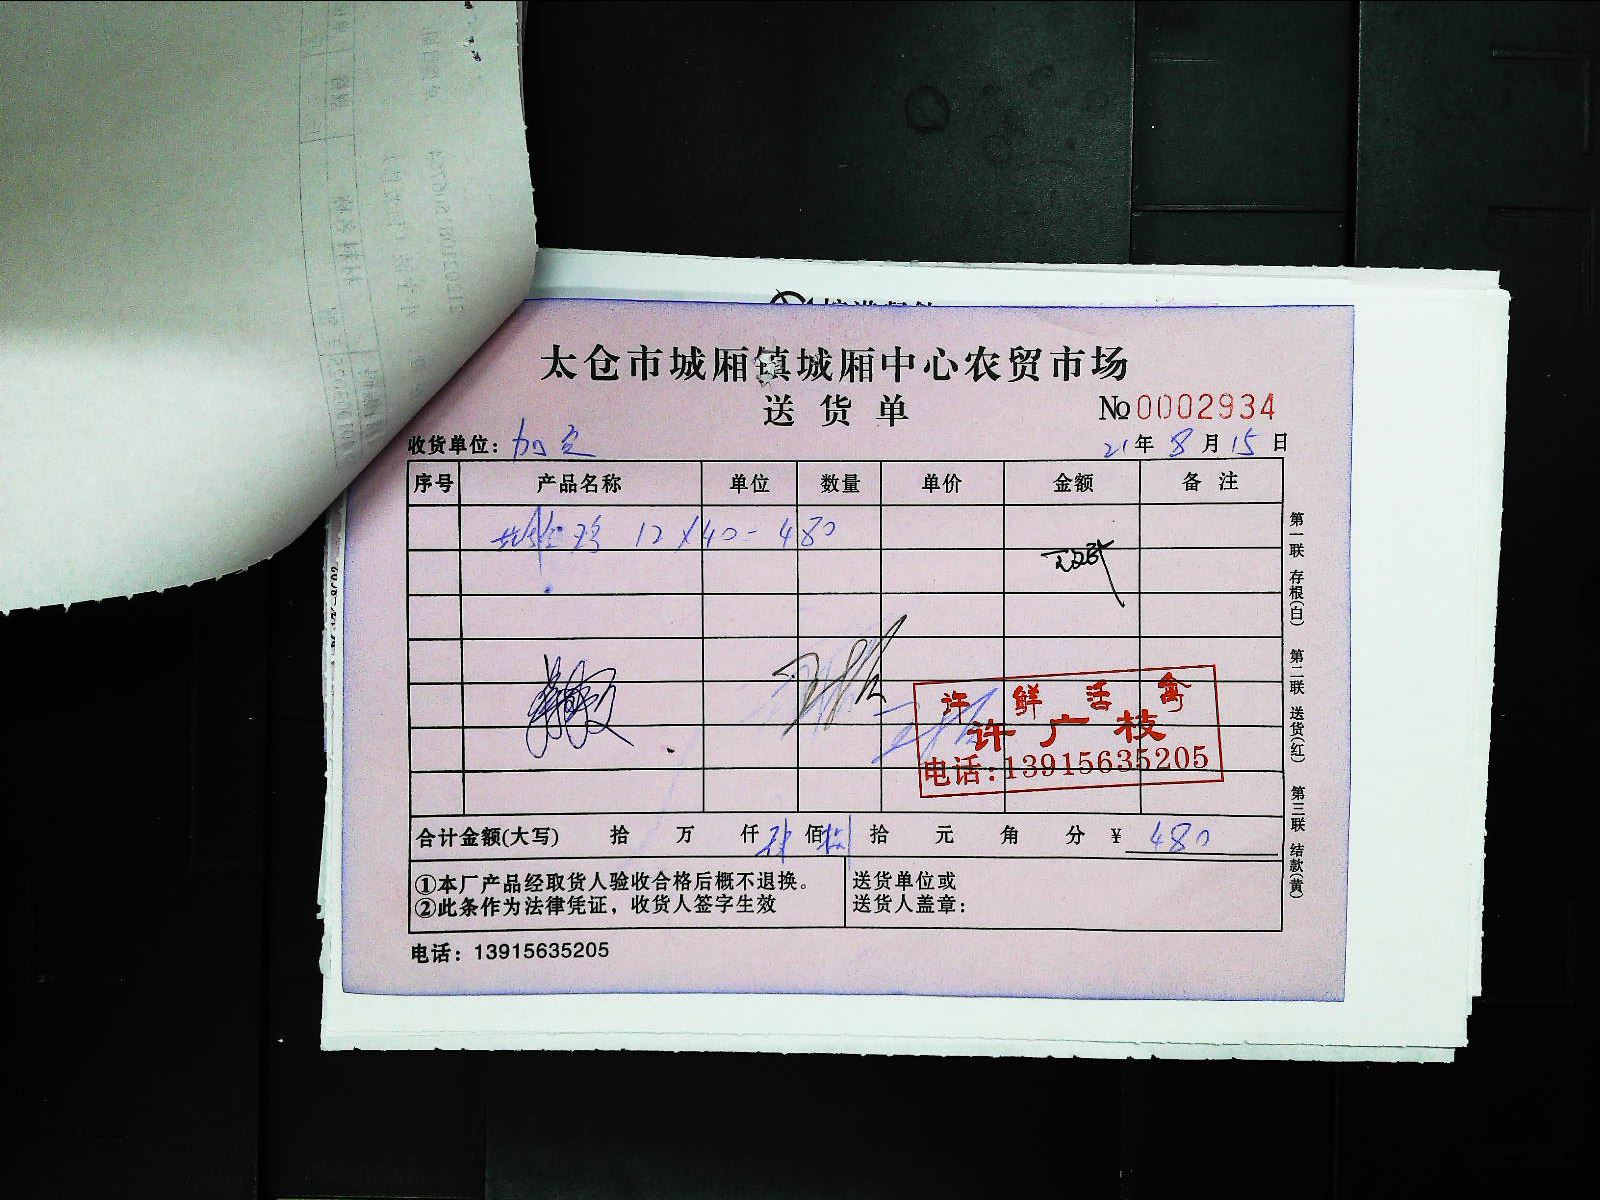 太仓市城厢镇城厢中心农贸市场
送货单
№0002934
收货单位：加定
21年8月15日
序号 产品名称 单位 数量 单价 金额 备注
12×40=480
许 鲜 活 禽
许广枝
电话：13915635205
合计金额(大写) 拾 万 仟 佰 拾 元 角 分 ¥ 480
①本厂产品经取货人验收合格后概不退换。
②此条作为法律凭证，收货人签字生效
送货单位或
送货人盖章：
电话：13915635205
第一联 存根(白) 第二联 送货(红) 第三联 结款(黄)